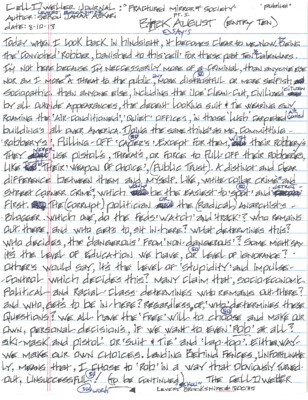 CELL DWELLER JOURNAL: "FRACTURED MIRROR" SOCIETY
PT. I
DATE: 9-10-17 BLACK AUGUST (ENTRY TEN)
ESSAYS
TODAY WHEN I LOOK BACK IN HINDSIGHT, IT BECOMES CLEAR TO ME NOW, BEING
THE 'CONVICTED' ROBBER, BANISHED TO THIS CELL FOR THESE PAST TEN CALENDARS.
I'M NOT HERE BECAUSE I'M NECESSARILY MORE OF A CRIMINAL, THAN ANYONE ELSE
NOR AM I MORE A THREAT TO THE PUBLIC, MORE DISTRUSTFUL OR MORE SELFISH
SOCIOPATHIC THAN ANYONE ELSE, INCLUDING THE 'CLEAN-CUT', CIVILIZED
BY ALL OUTSIDE APPEARANCES, THE DECENT LOOKING SUIT & TIE WEARING GUY
ROAMING THE 'AIR-CONDITIONED', 'QUIET' OFFICES, IN THOSE 'LUSH' CARPETED
BUILDINGS ALL OVER AMERICA. DOING THE SAME THING AS ME, COMMITTING
ROBBERY'S, PULLING-OFF 'CAPERS'. EXCEPT FOR THEM, THEIR ROBBERYS
THEY USE PISTOLS, THREATS, OR FORCE TO PULL-OFF THEIR ROBBERIES,
LIKE THEIR 'WEAPON OF CHOICE', (PUBLIC TRUST). A DISTINCT AND CLEAR
DIFFERENCE BETWEEN THEM AND MYSELF. LIKE, WHITE COLLAR CRIME AND
STREET CORNER CRIME. WHICH ONE'S THE EASIEST TO 'SPOT'
FIRST. THE (CORRUPT) POLITICIAN THE (RADICAL) ANARCHIST-
BLOGGER. WHICH ONE, DO THE 'FEDS' WATCH AND 'TRACK'? WHO REMAINS
OUT THERE AND WHO GETS TO SIT IN HERE? WHAT DETERMINES THIS?
WHO DECIDES, THE DANGEROUS' FROM 'NON-DANGEROUS'? SOME MIGHT SAY
IT'S THE LEVEL OF EDUCATION WE HAVE, OR LEVEL OF IGNORANCE?
OTHERS WOULD SAY, IT'S THE LEVEL OF 'STUPIDITY' AND IMPULSE-
CONTROL WHICH DECIDES THIS? MANY CLAIM THAT, SOCIOECONOMIC,
POLITICAL AND RACIAL-CLASS DETERMINES WHO REMAINS OUT THERE?
AND WHO, GETS TO BE IN HERE? REGARDLESS, OF 'WHO' DETERMINES THESE
QUESTIONS? WE ALL HAVE THE 'FREE' WILL TO CHOOSE AND MAKE OUR
OWN, PERSONAL-DECISIONS, IF WE WANT TO EVEN 'ROB' AT ALL?
SKI-MASK AND PISTOL' OR 'SUIT & TIE' AND LAP TOP'. EITHERWAY
WE MAKE OUR OWN CHOICES. LANDING BEHIND FENCES, UNFORTUNATE-
LY, MEANS THAT, I CHOSE TO 'ROB' IN A WAY THAT OBVIOUSLY TURNED-
OUT, UNSUCCESSFUL!! (TO BE CONTINUED) THE CELL DWELLER